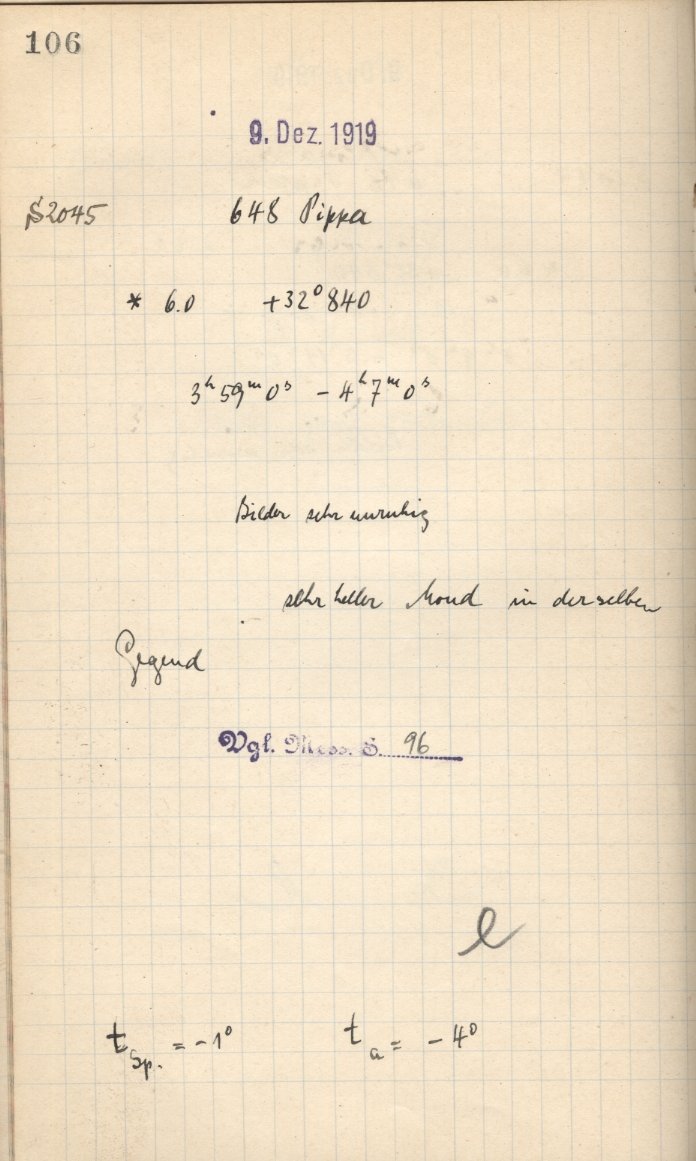 106
9. Dez. 1919
S2045 648 Pippa
* 6.0 +32° 840
3ʰ 59ᵐ 0ˢ – 4ʰ 7ᵐ 0ˢ
Bilder sehr unruhig
sehr heller Mond in derselben
Gegend
Vgl. Mess. S. 96
l
t Sp. = -1°  t a = -4°